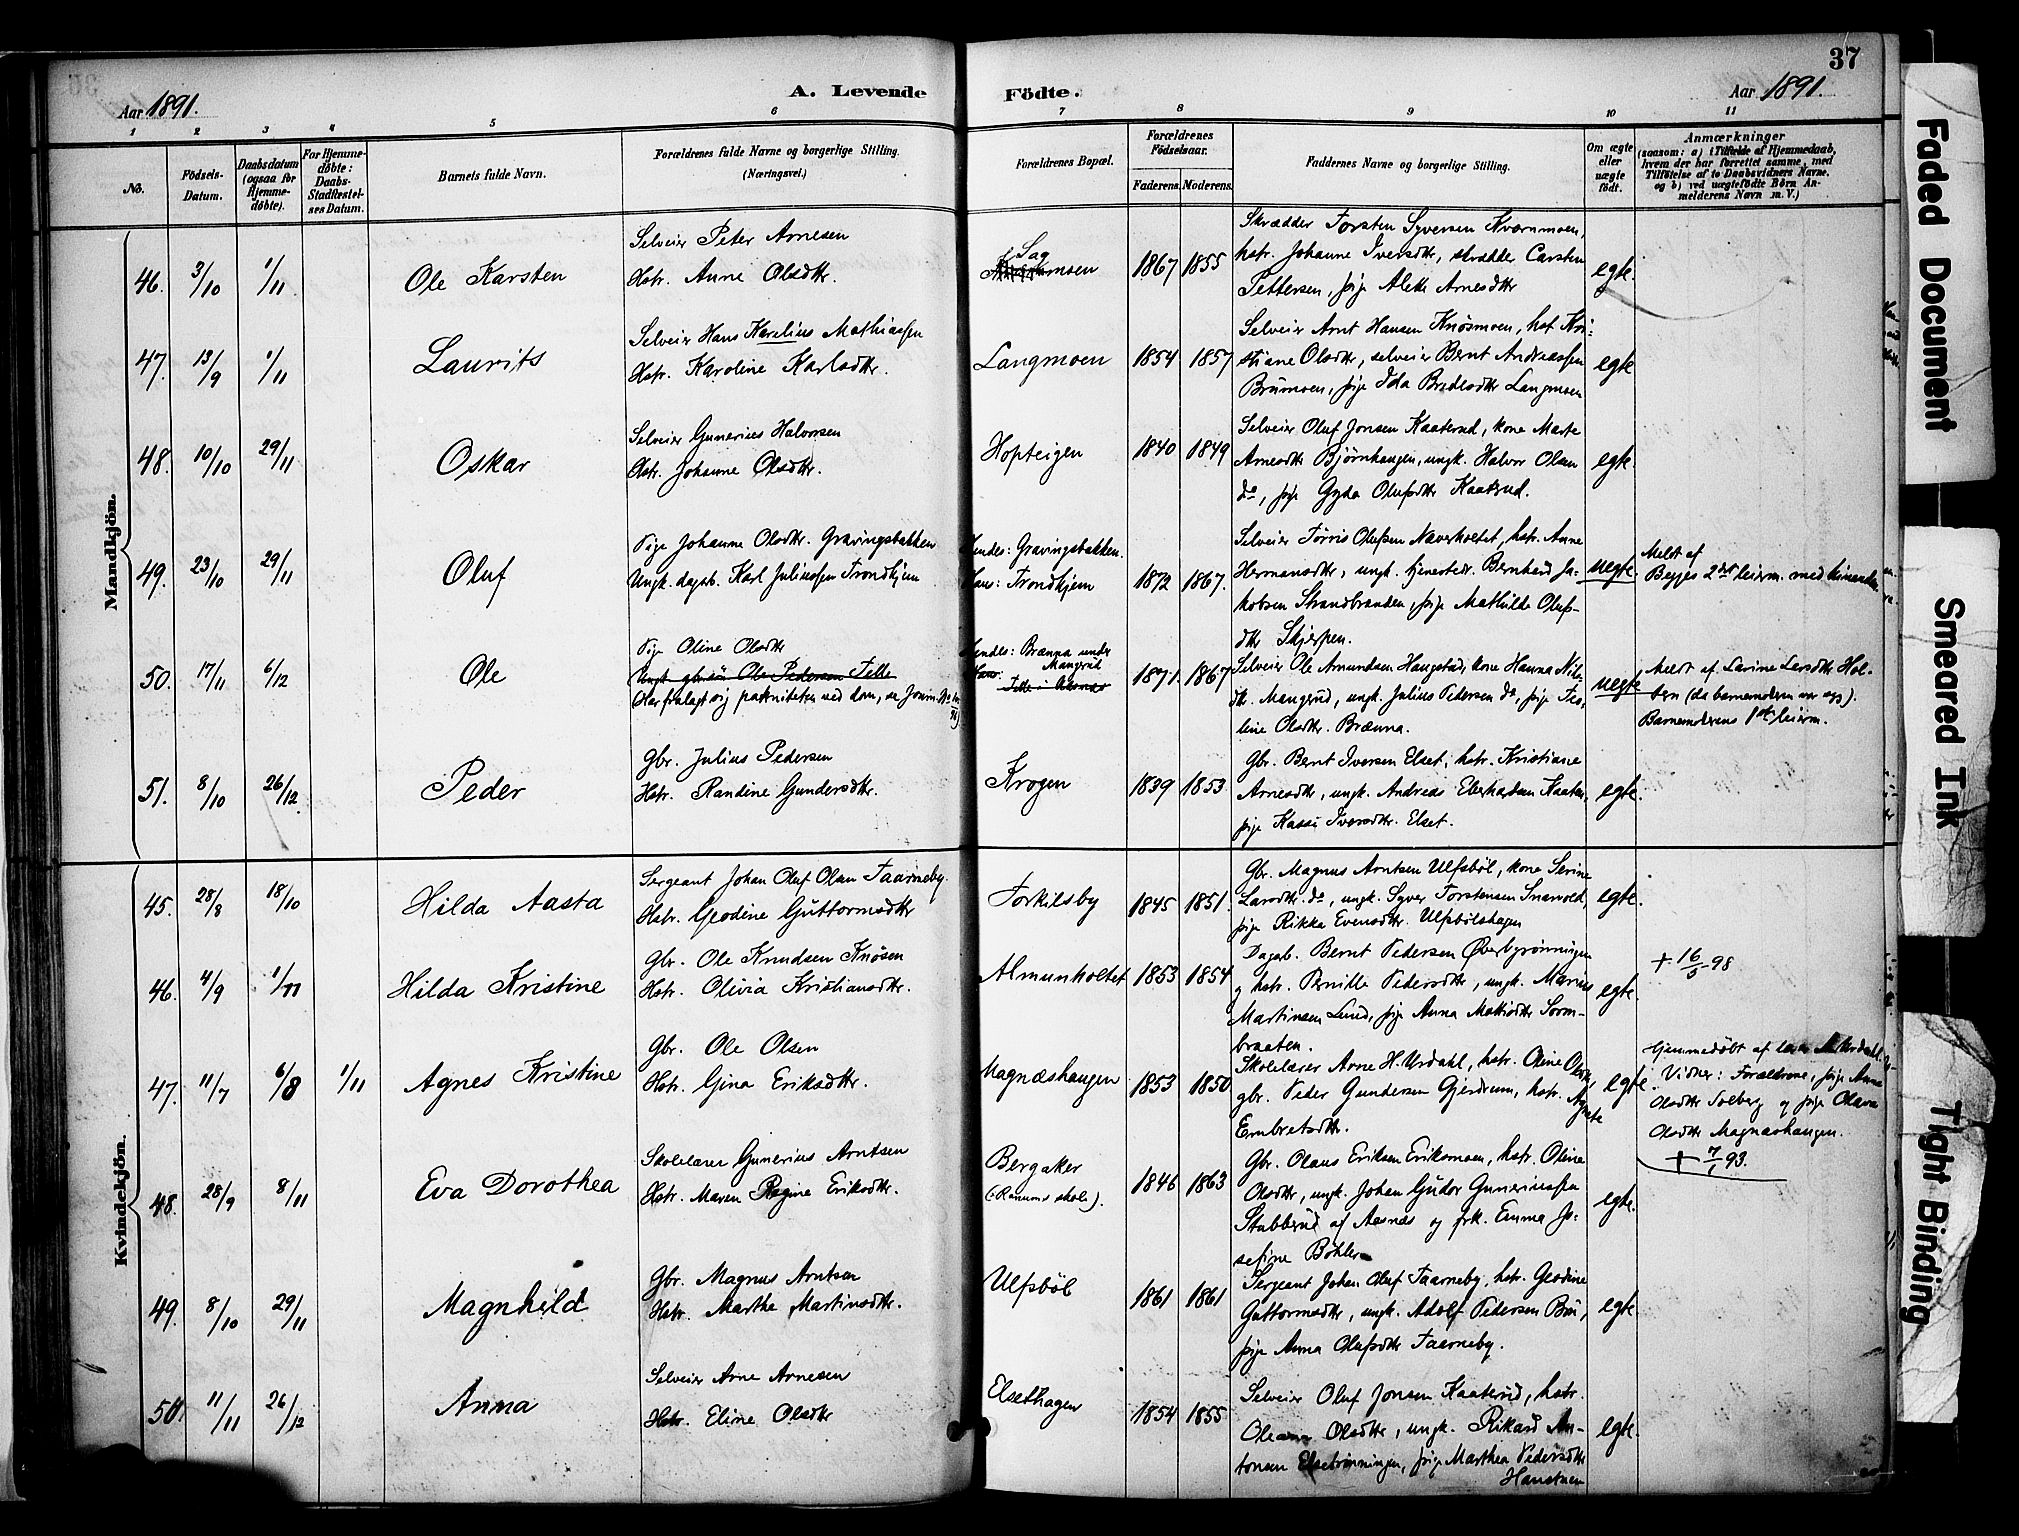 37
Aar 1891.
A. Levende Födte.
Aar 1891.
1 2 3 4 5 6 7 8 9 10 11
No.
Födsels-Datum.
Daabsdatum (ogsaa for Hjemme-döbte).
For Hjemme-döbte: Daabs-Stadfæstel-ses Datum.
Barnets fulde Navn.
Forældrenes fulde Navne og borgerlige Stilling.
(Næringsvei.)
Forældrenes Bopæl.
Forældrenes Födselsaar.
Faderens. Moderens.
Faddernes Navne og borgerlige Stilling.
Om ægte eller uægte födt.
Anmærkninger
(saasom: a) i Tilfælde af Hjemmedaab,
hvem der har forrettet samme, med
Tilföielse af to Daabsvidners Navne,
og b) ved uægtefödte Börn An-
melderens Navn m. V.)
Mandkjön.
46. 3/10 1/11 Ole Karsten
Selveier Peter Arnesen
Hstr. Anne Olsdtr.
Sag
moen
1867 1855
Skrædder Torsten Syversen Kvernmoen,
hstr. Johanne Iversdtr, skrædder Carsten
Pettersen, pige Alette Arnesdtr
egte.
47. 13/9 1/11 Laurits
Selveier Hans Karelius Mathiassen
Hstr. Karoline Karlsdtr.
Langmoen
1854 1857
Selveier Arnt Hansen Knösmoen, hst. Kri-
stiane Olsdtr, selveier Bernt Andreassen
Brumoen, pige Ida Bredesdtr Langmoen
egte.
48. 10/10 29/11 Oskar
Selveier Gunerius Halvorsen
Hstr. Johanne Olsdtr.
Hopteigen
1840 1849
Selveier Oluf Jonsen Kaaterud, kone Marte
Arnesdtr Bjørnhaugen, ungk. Halvor Olsen
do, pige Gyda Olufsdtr Kaaterud.
egte.
49. 23/10 29/11 Oluf
Pige Johanne Olsdtr. Gravingsbakken
Ungk. dagsb. Karl Juliussen Trondhjem
Hendes: Gravingsbakken.
Hans: Trondhjem
1872 1867.
Selveier Tørris Olufsen Næverholtet, hstr. Anne
Hermansdtr, ungk. tjenestedr. Bernhard Ja-
kobsen Strandbranden, pige Mathilde Olufs-
dtr Skjerpen.
uegte.
Meldt af
Begges 2det leierm. med hinanden
50. 17/11 6/12 Ole
Pige Oline Olsdtr
Ungk. gbr.sön Ole Pedersen Felle
Har fralagt sig paterniteten ved dom, se Journ. No
Hendes: Brænna under
Mangrud
Hans: Felle i Aasnes
1871. 1867
Selveier Ole Amundsen Haugstad, kone Hanna Nils-
dtr. Mangrud, ungk. Julius Pedersen do, pige
Olsdtr. Brænna.
uegte
Meldt af Larine Larsdtr Hol-
ten (da barnemoderen var syg).
Barnemoderens 1ste leierm.
51. 8/10 26/12 Peder
Gbr. Julius Pedersen
Hstr. Randine Gundersdtr.
Krogen
1839 1853
Gbr. Bernt Iversen Elset, hstr. Kristiane
Arnesdtr, ungk. Andreas Eberhardsen Kaaten,
pige Kasse Iversdtr. Elset.
egte.
Kvindekjön.
45. 28/8 18/10 Hilda Aasta
Sergeant Johan Oluf Olsen Taarneby.
Hstr. Geodine Guttormsdtr
Torkilsby
1845 1851.
Gbr. Magnus Arntsen Ulfsböl, kone Serine
Larsdtr. do, ungk. Syver Torstensen Snarvold,
pige Rikka Evensdtr. Ulfsbölshagen
egte.
46. 4/9 1/11 Hilda Kristine
Gbr. Ole Knudsen Knösen
Hstr. Olivia Kristiansdtr.
Almunholtet
1853 1854
Dagsb. Bernt Pedersen Øverbyrønningen
og hstr. Pernille Pedersdtr, ungk. Marius
Martinsen Lund, pige Anna Mattisdtr Sorm-
braaten.
egte.
+ 16/5-98
47. 11/7 6/8 1/11 Agnes Kristine
Gbr. Ole Olsen
Hstr. Gina Eriksdtr.
Magnæshaugen
1853 1850
Skolelærer Arne H. Urdahl, hstr. Oline Olsdtr,
gbr. Peder Gundersen Gjerdrum, hstr. Agnete
Embretsdtr.
egte
Hjemmedöbt af lærer A. Urdahl.
Vidner: Forældrene, pige Anna
Olsdtr Solberg og pige Olava
Olsdtr Magnæshaugen.
+ 7/1 93.
48. 28/9 8/11 Eva Dorothea
Skolelærer Gunerius Arntsen
Hstr. Maren Regine Eriksdtr.
Bergaker
(:Ranums skole).
1846 1863
Gbr. Olaus Eriksen Eriksmoen, hstr. Oline
Olsdtr, ungk. Johan Gudor Guneriussen
Stubberud af Aasnæs og frk. Emma Jo-
sefine Böhler
egte.
49. 8/10 29/11 Magnhild
Gbr. Magnus Arntsen
Hstr. Marthe Martinsdtr.
Ulfsböl
1861 1861
Sergeant Johan Oluf Taarneby, hstr. Geodine
Guttormsdtr, ungk. Adolf Pedersen Bru,
pige Anna Olufsdtr Taarneby.
egte
50. 11/11 26/12 Anna
Selveier Arne Arnesen
Hstr. Eline Olsdtr
Elsethagen
1854 1855
Selveier Oluf Jonsen Kaaterud, hstr.
Oleane Olsdtr, ungk. Rikard An-
tonsen Elsetrönningen, pige Marthea Pedersdtr
Hanstuen
egte.
Faded Document
Smeared Ink
Tight Binding